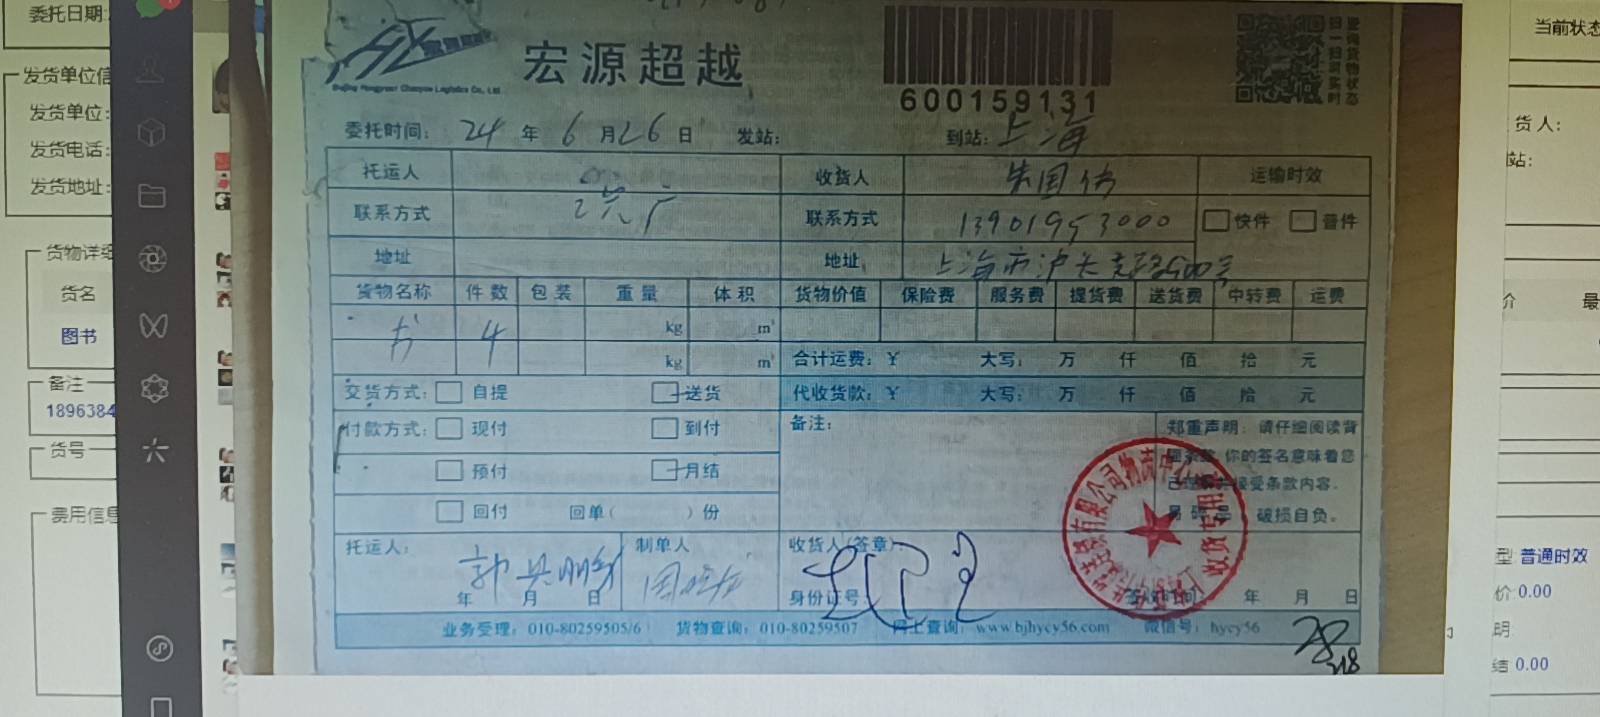 委托日期:
当前状态
发货单位信
发货单位:
发货电话:
发货地址:
货物详细
货名
图书
备注
1896384
货号
费用信息
宏源超越
600159131
扫一扫实时
查询货物状态
委托时间: 24 年 6 月 26 日 发站: 到站: 上海
托运人 收货人 朱国伟 运输时效
联系方式 联系方式 13901953000 快件 普件
地址 地址
货物名称 件数 包装 重量 体积 货物价值 保险费 服务费 提货费 送货费 中转费 运费
书 4 kg m³
kg m³ 合计运费: ¥ 大写: 万 仟 佰 拾 元
交货方式: 自提 送货 代收货款: ¥ 大写: 万 仟 佰 拾 元
付款方式: 现付 到付 备注:
预付 月结
回付 回单( )份
郑重声明: 请仔细阅读背
你的签名意味着您
接受条款内容.
破损自负。
托运人: 制单人 收货人(签章):
年 月 日 身份证号: 签收时间 年 月 日
业务受理: 010-80259505/6 货物查询: 010-80259507 网上查询: www.bjhycy56.com 微信号: hycy56
货人:
站:
价 最
型 普通时效
价: 0.00
明
结 0.00